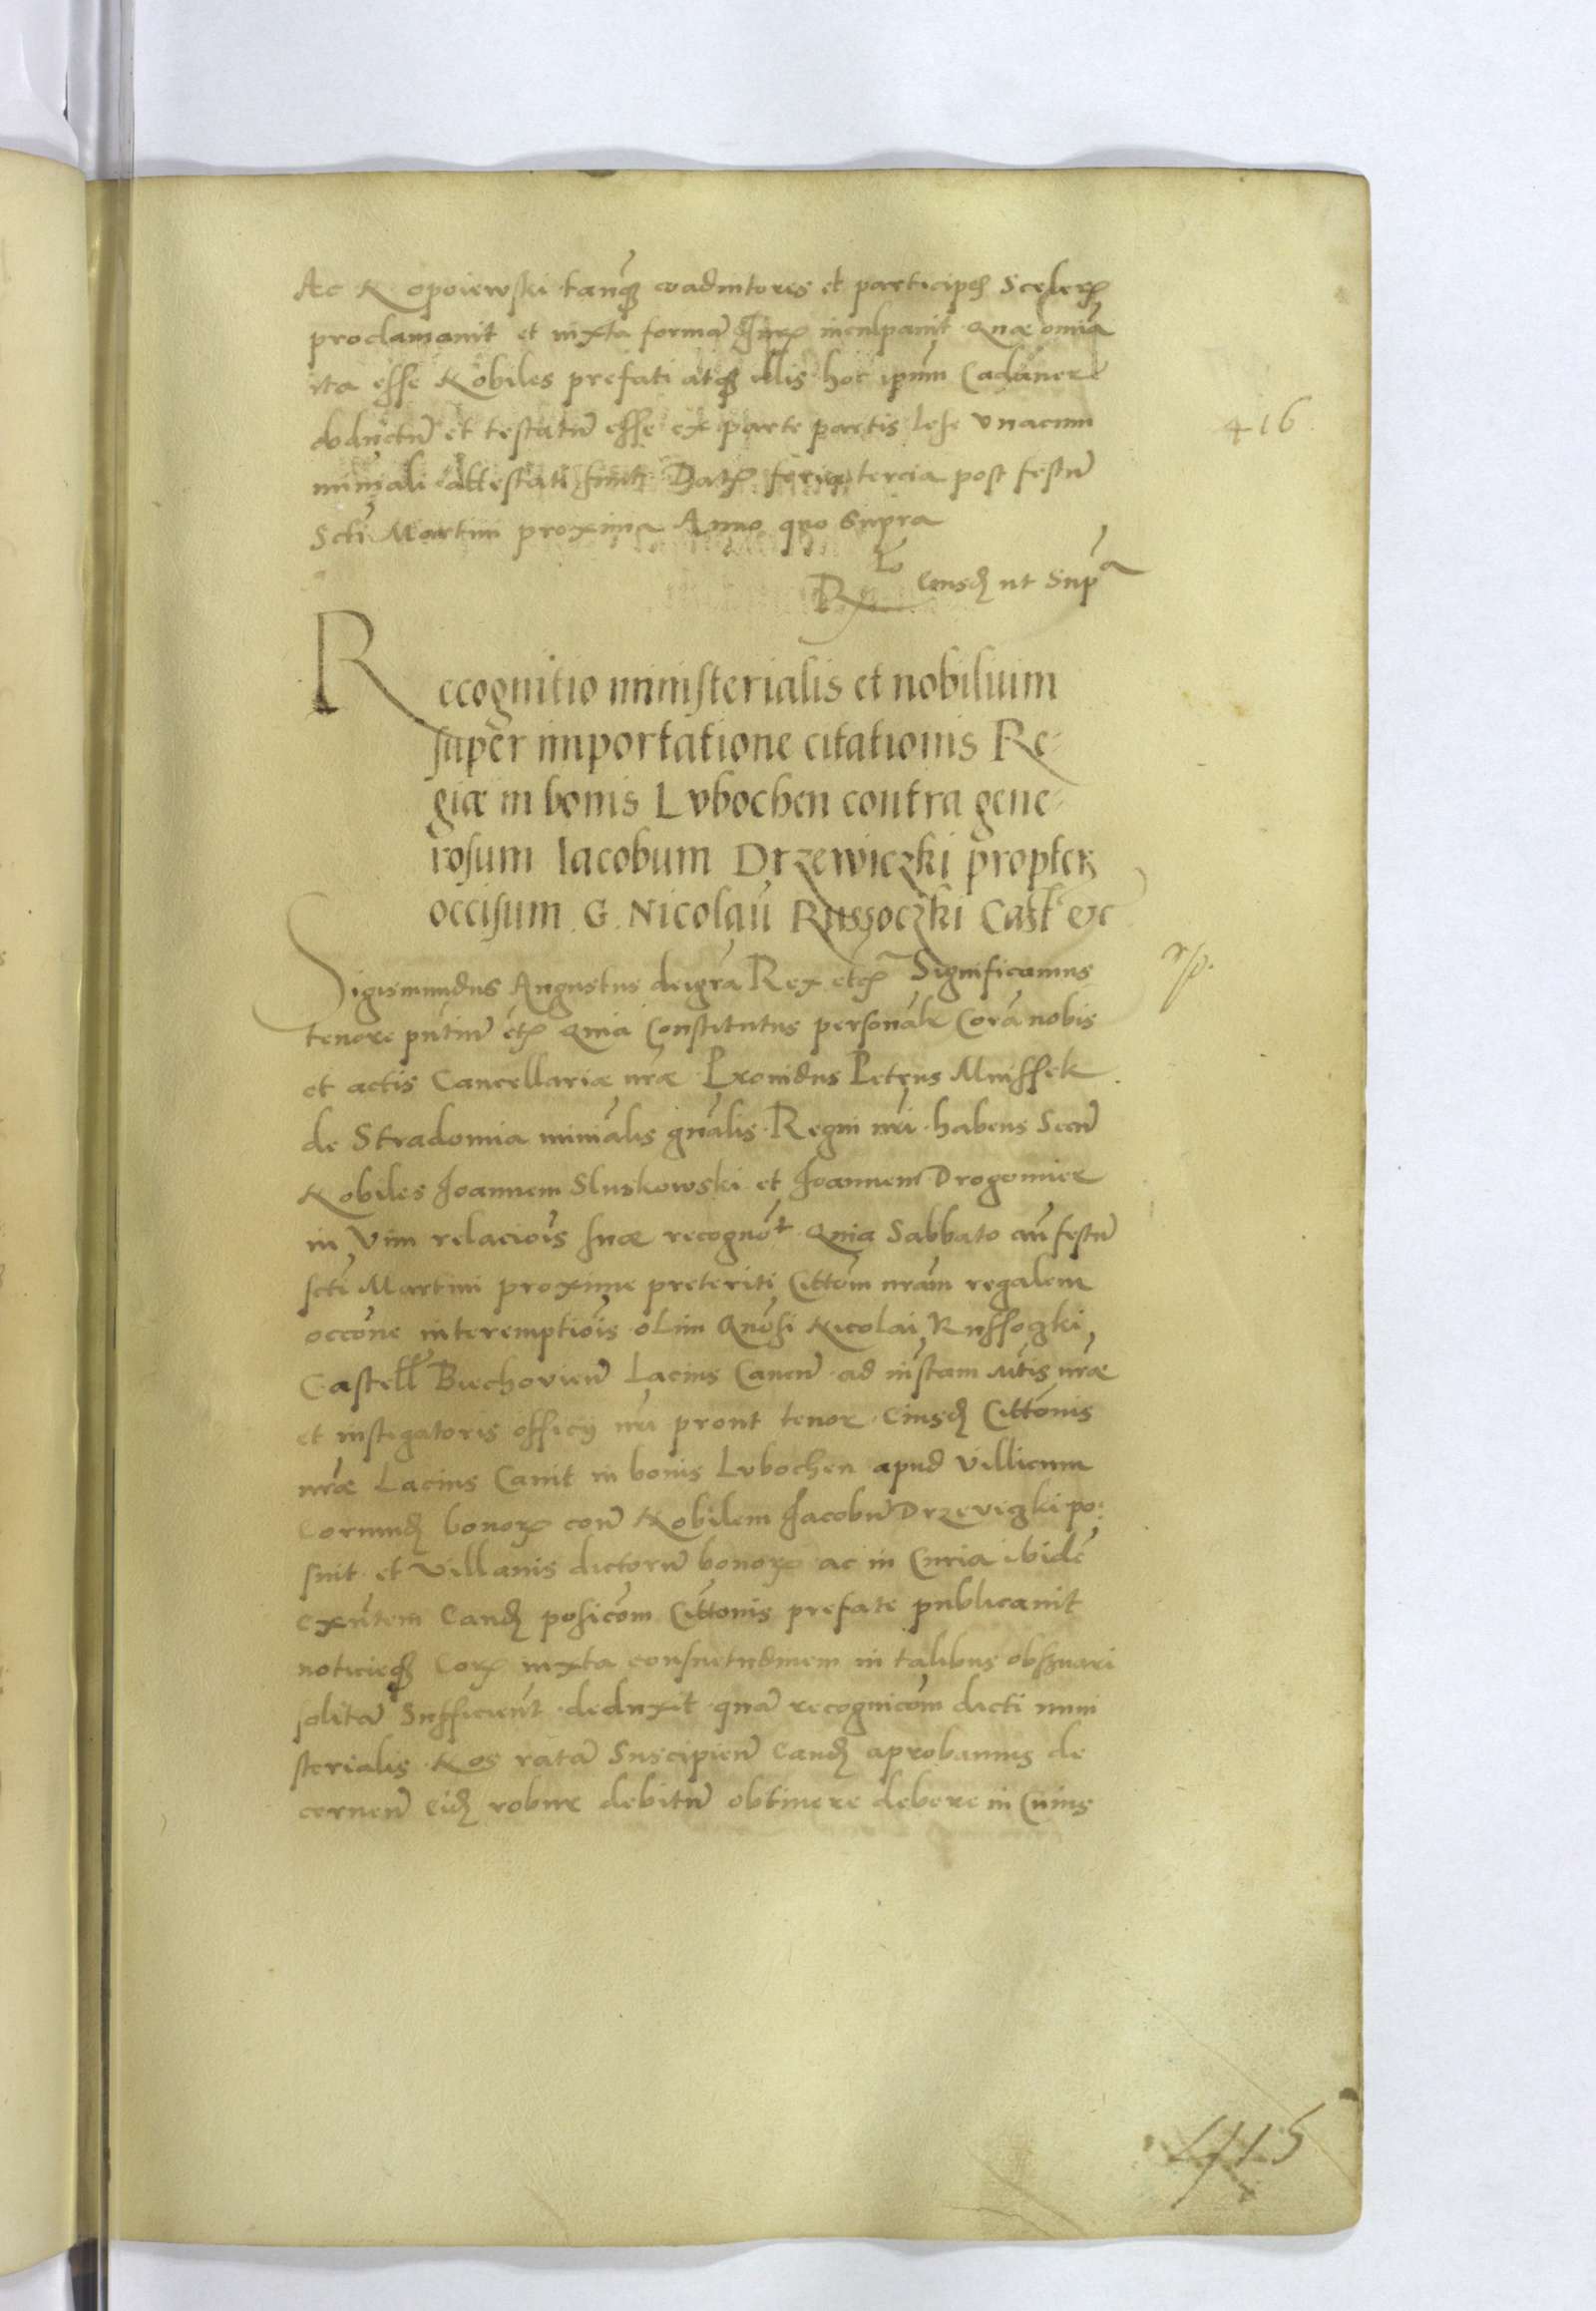 Ac Kopoiewski tanq̃ coadiutores et participes Sceler
proclamauit et iuxta formã Jur inculpauit Quæ om̃ia
ita esse Nobiles prefati atq illis hoc ip̃um Cadauere
obductũ et testatũ esse ex parte partis lese vnacum
minĩali attestati sunt Dat feria tercia post festũ
Scti Martini proxima Anno quo Supra
Rlo Eiusd ut Supa
416
Recognitio ministerialis et nobilium
super importatione citationis Re-
giæ in bonis Lvbochen contra gene-
rosum Iacobum Drzewiczki propter
occisum G. Nicolaũ Russoczki Castel etc
Sigismundus Augustus dei gr̃a Rex etc Significamus
rp.
tenore p̃ntiũ etc Quia Constitutus personãlr Corã nobis
et actis Cancellariæ nr̃æ Prouidus Petrus Mnissek
de Stradomia ministãlis gnãlis Regni nr̃i habens Secũ
Nobiles Joannem Sluskowski et Joannem Drogomier
in Vim relaciõis suæ recognõt Quia Sabbato añ festũ
scti Martini proxime preteriti Citt̃om nr̃am regalem
occõne interemptiõis olim Gnõsi Nicolai Russoczki
Castell Biechovieñ Lacius Caneñ ad instam Mtis nr̃æ
et instigatoris officij nr̃i prout tenor eiusd Citt̃onis
nr̃æ Lacius Canit in bonis Lvbochen apud villicum
eorumd bonor coñ Nobilem Jacobũ Drzeviczki po:
suit et Villanis dictorũ bonor ac in Curia ibidẽ
exñtem eand posicõm Citt̃onis prefate publicauit
noticieq eor iuxta consuetudinem in talibus obseruari
solitã SufficienT deduxit quã recognicõm dicti mini
sterialis Nos ratã Suscipieñ eand aprobamus de
cerneñ eid robur debitũ obtinere debere in Cuius
415